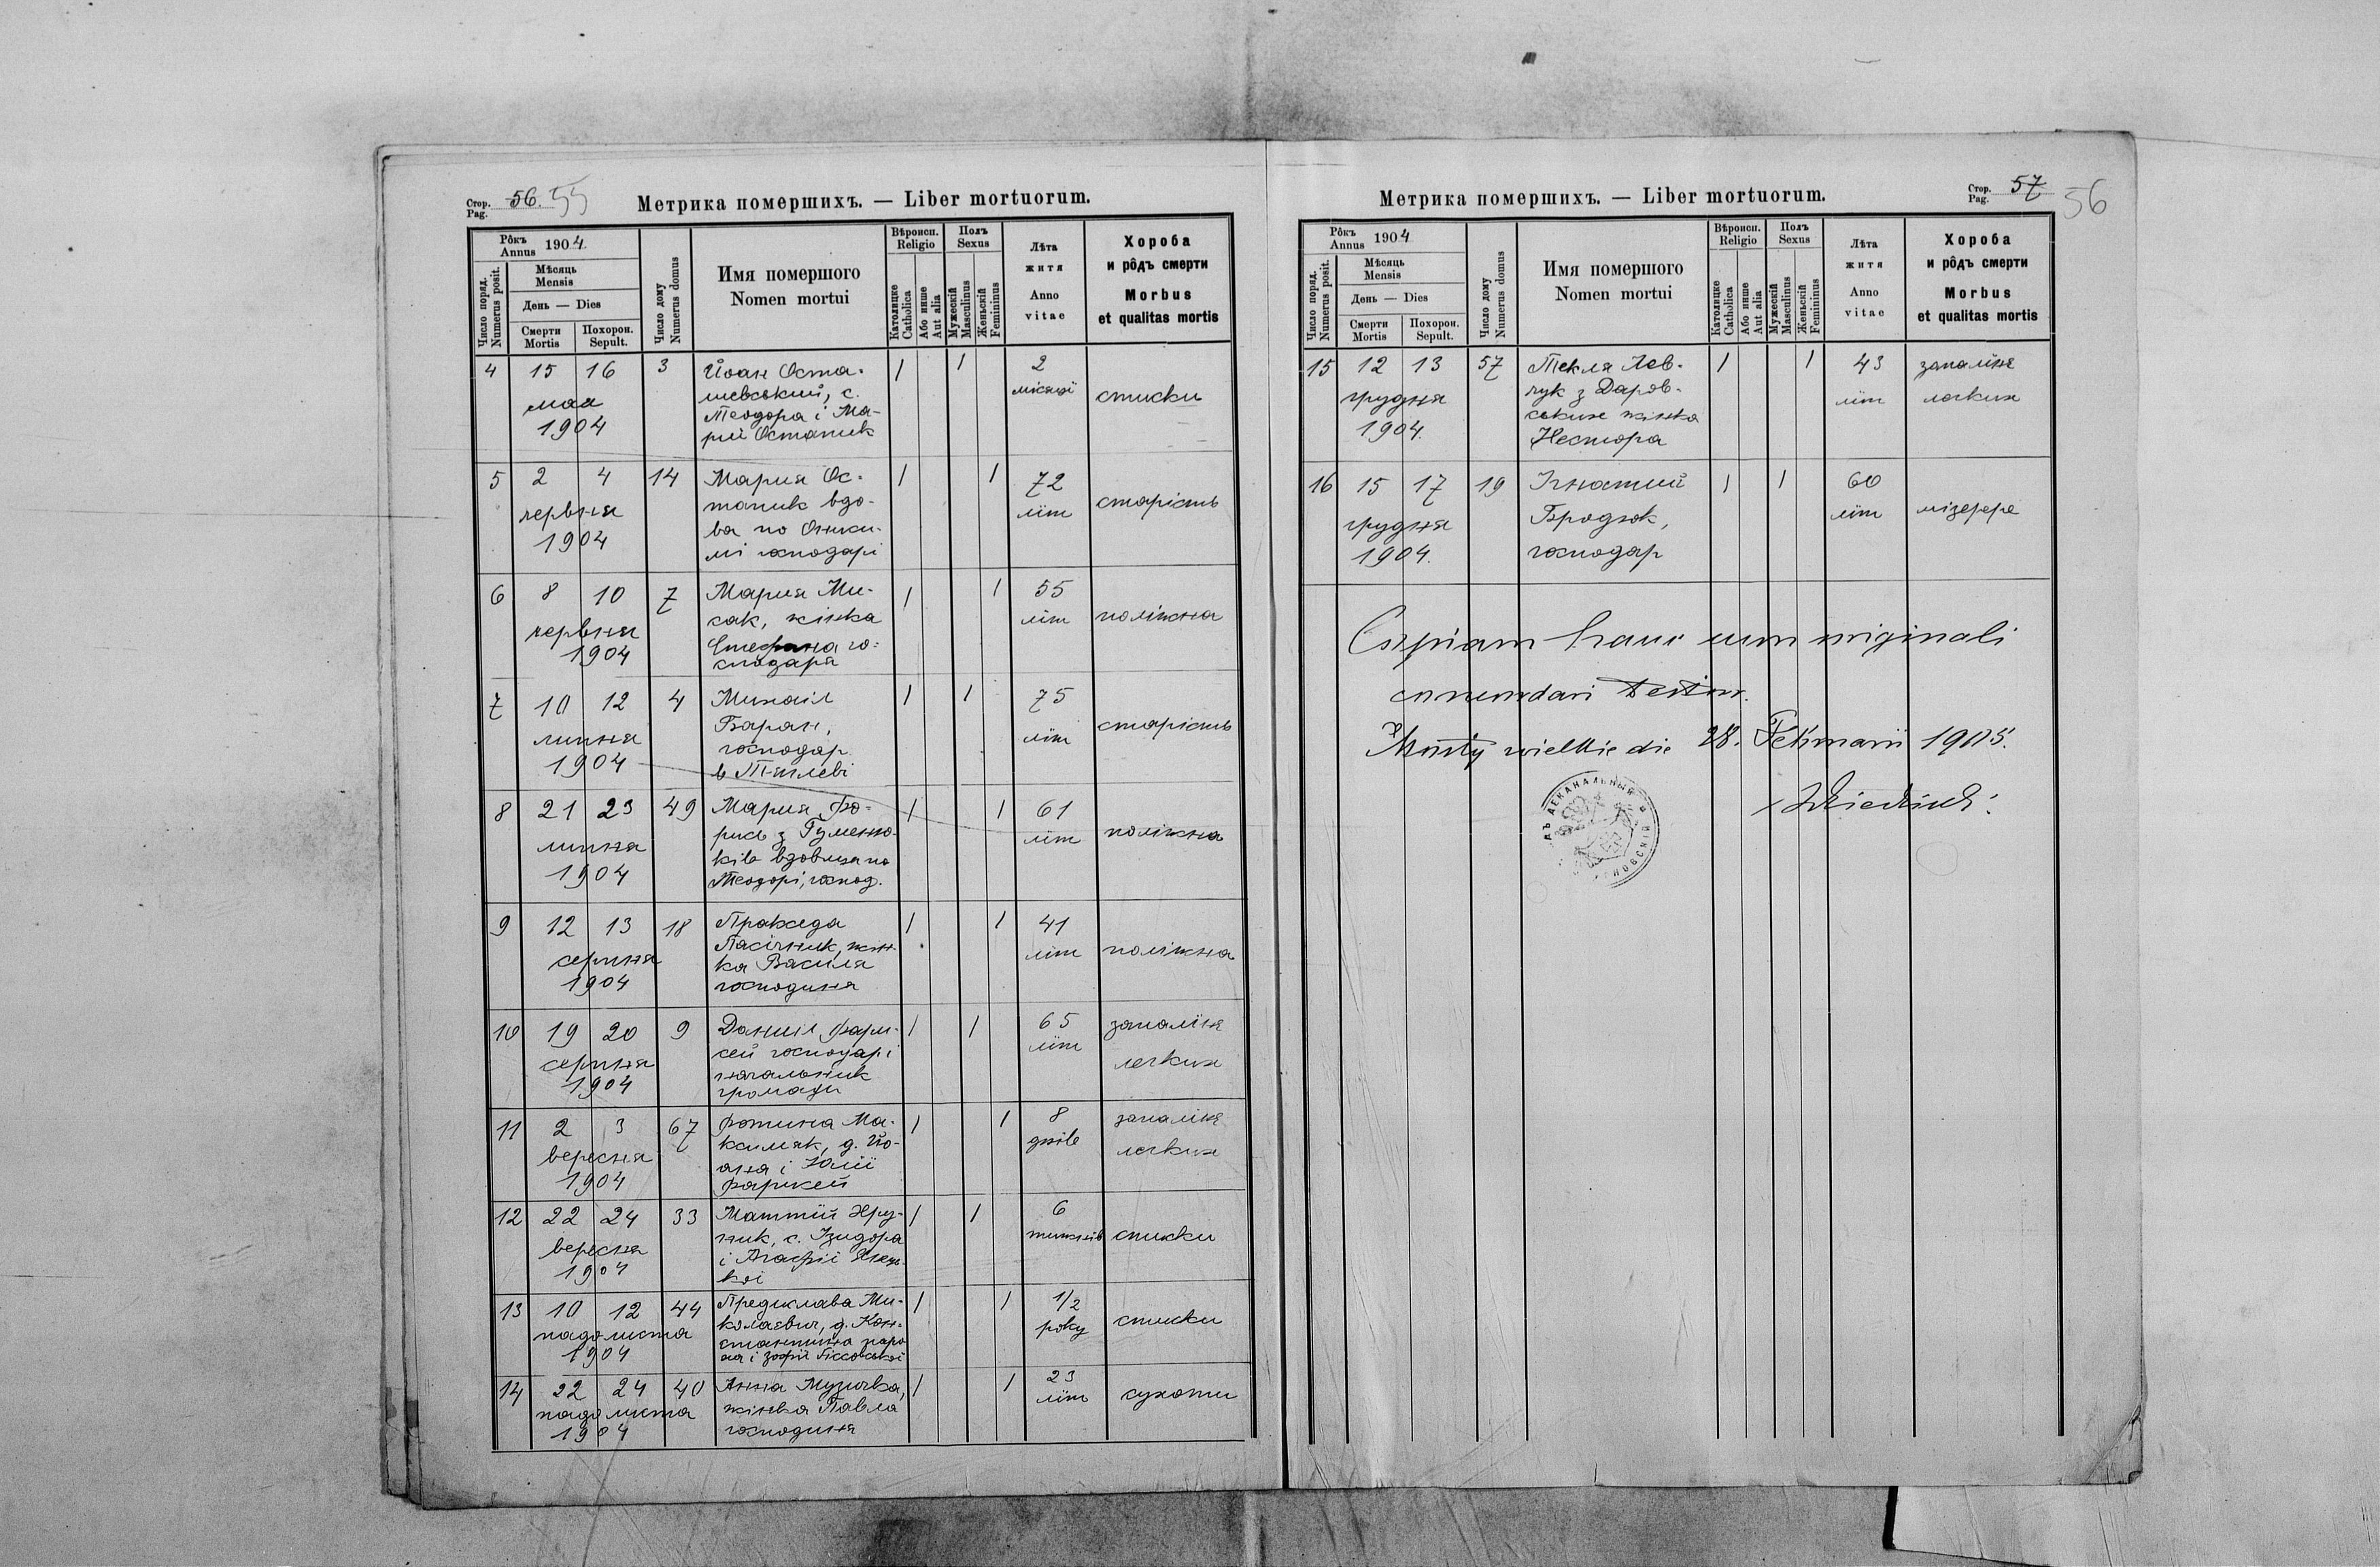 Стор. Pag. 56. 55
Метрика помершихъ. — Liber mortuorum.
Рôкъ Annus 1904
Число поряд. Numerus posit.
Мѣсяць Mensis
День — Dies
Смерти Mortis
Похорон. Sepult.
Число дому Numerus domus
Имя помершого
Nomen mortui
Вѣроисп. Religio
Католицке Catholica
Або инше Aut alia
Полъ Sexus
Мужескій Masculinus
Женьскій Femininus
Лѣта житя
Anno vitae
Хороба и рôдъ смерти
Morbus et qualitas mortis
4 15 16 3 Йоан Оста- 1 1 2
мая шевський, с. місяці списки
1904 Теодора і Ма-
рії Остапик
5 2 4 14 Мария Ос- 1 1 72
червня тапик вдо- літ старість
1904 ва по Оники-
мі господарі
6 8 10 7 Мария Ми- 1 1 55
червня сак, жінка літ поліжна
1904 Стефана го-
сподаря
7 10 12 4 Михаіл 1 1 75
липня Баран, літ старість
1904 господар
в Тяглеві
8 21 23 49 Мария 1 1 61
липня з літ поліжна
1904 ків вдовиця по
Теодорі, господ.
9 12 13 18 Пракседа 1 1 41
серпня Пасічник, жін- літ поліжна
1904 ка Василя
господиня
10 19 20 9 Данило Фари- 1 1 65 запаліня
серпня сей господар і літ легких
1904 начальник
громади
11 2 3 67 Фотина Ма- 1 1 8 запаліня
вересня ксимяк, д. Йо- днів легких
1904 ана і Юлії
Фарисей
12 22 24 33 Маттій 1 1 6
вересня с. Ізидора тижнів списки
1904 і Агафії
13 10 12 44 Предислава Ми- 1 1 1/2
падолиста колаєвич, д. Кон- року списки
1904 стантина паро-
ха і Зофії
14 22 24 40 Анна Музичка, 1 1 23
падолиста жінка Павла літ сухоти
1904 господиня
Метрика помершихъ. — Liber mortuorum.
Стор. Pag. 57 56
Рôкъ Annus 1904
Число поряд. Numerus posit.
Мѣсяць Mensis
День — Dies
Смерти Mortis
Похорон. Sepult.
Число дому Numerus domus
Имя помершого
Nomen mortui
Вѣроисп. Religio
Католицке Catholica
Або инше Aut alia
Полъ Sexus
Мужескій Masculinus
Женьскій Femininus
Лѣта житя
Anno vitae
Хороба и рôдъ смерти
Morbus et qualitas mortis
15 12 13 57 Текля Лев- 1 1 43 запаліня
грудня чук з Даров- літ легких
1904. ських жінка
Нестора
16 15 17 19 Ігнатий 1 1 60
грудня Бродюк, літ мізерере
1904. господар
Copiam hanc cum originali
concordari testor.
Mosty wielkie die 28. Februarii 1905.
ДЕКАНАЛЬНЫЙ